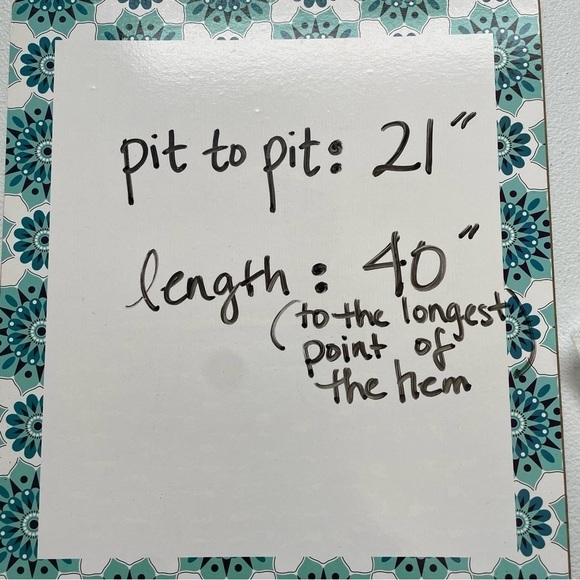 pit to pit: 21"
length: 40"
(to the longest
point of
the hem)